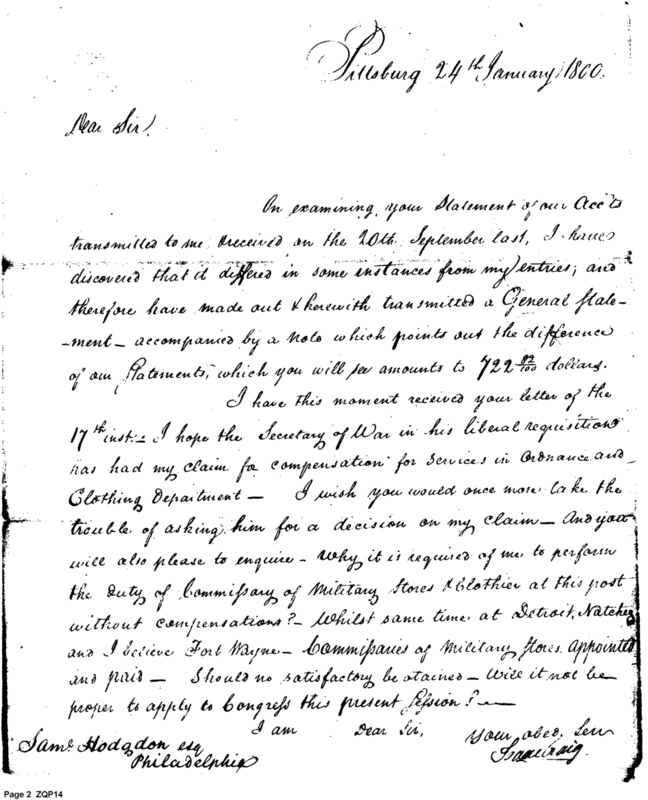 Pittsburg 24th January 1800.
Dear Sir,
On examining your Statement of our Accts
transmitted to me & received on the 20th September last, I have
discovered that it differed in some instances from my entries; and
therefore have made out & herewith transmitted a General State-
-ment - accompanied by a note which points out the difference
of our Statements, which you will see amounts to 722 82/100 dollars.
I have this moment received your letter of the
17th inst:- I hope the Secretary of War in his liberal requisition
has had my claim for compensation for Services in Ordnance and
Clothing Department - I wish you would once more take the
trouble of asking him for a decision on my claim - And you
will also please to enquire - Why it is required of me to perform
the Duty of Commissary of Military Stores & Clothier at this post
without compensations? - Whilst same time at Detroit, Natchez
and I beieve Fort Wayne - Commissaries of Military Stores appointed
and paid - Should no satisfactory be otained - Will it not be
proper to apply to Congress this present Session? -
I am Dear Sir, your obed. Serv
Saml. Hodgdon esq Isaac Craig.
Philadelphia
Page 2 ZQP14